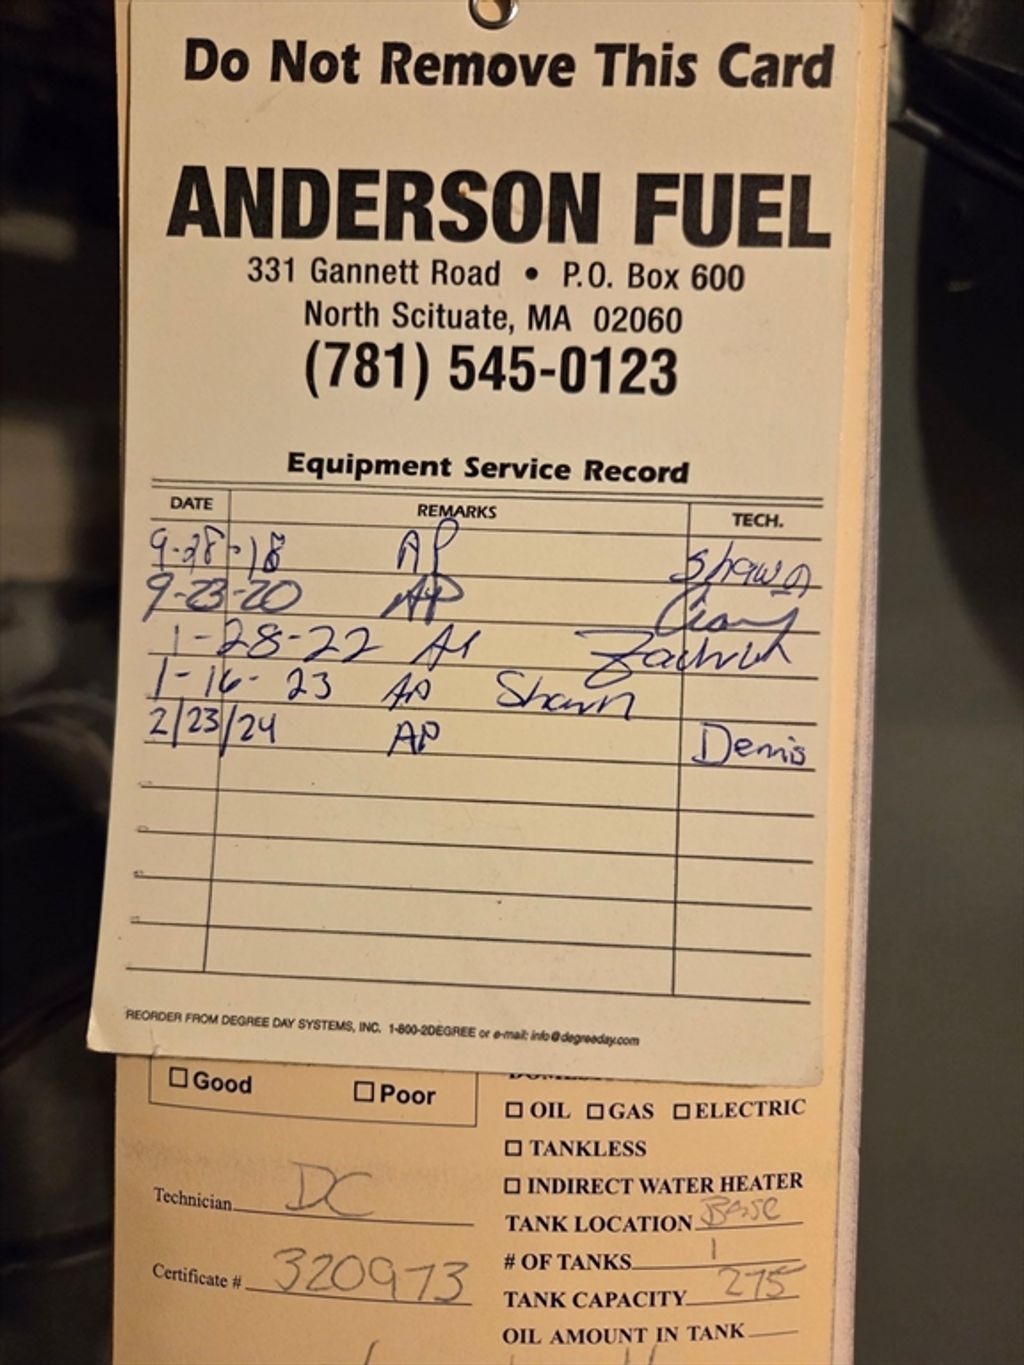 Do Not Remove This Card
ANDERSON FUEL
331 Gannett Road • P.O. Box 600
North Scituate, MA 02060
(781) 545-0123
Equipment Service Record
DATE REMARKS TECH.
9-28-18 AP Shawn
9-23-20 AP
1-28-22
1-16-23 AP Shawn
2/23/24 AP Dennis
REORDER FROM DEGREE DAY SYSTEMS, INC. 1-800-2DEGREE or e-mail: info@degreeday.com
☐ Good ☐ Poor
☐ OIL ☐ GAS ☐ ELECTRIC
☐ TANKLESS
☐ INDIRECT WATER HEATER
Technician DC
TANK LOCATION Base
# OF TANKS 1
Certificate # 320973
TANK CAPACITY 275
OIL AMOUNT IN TANK